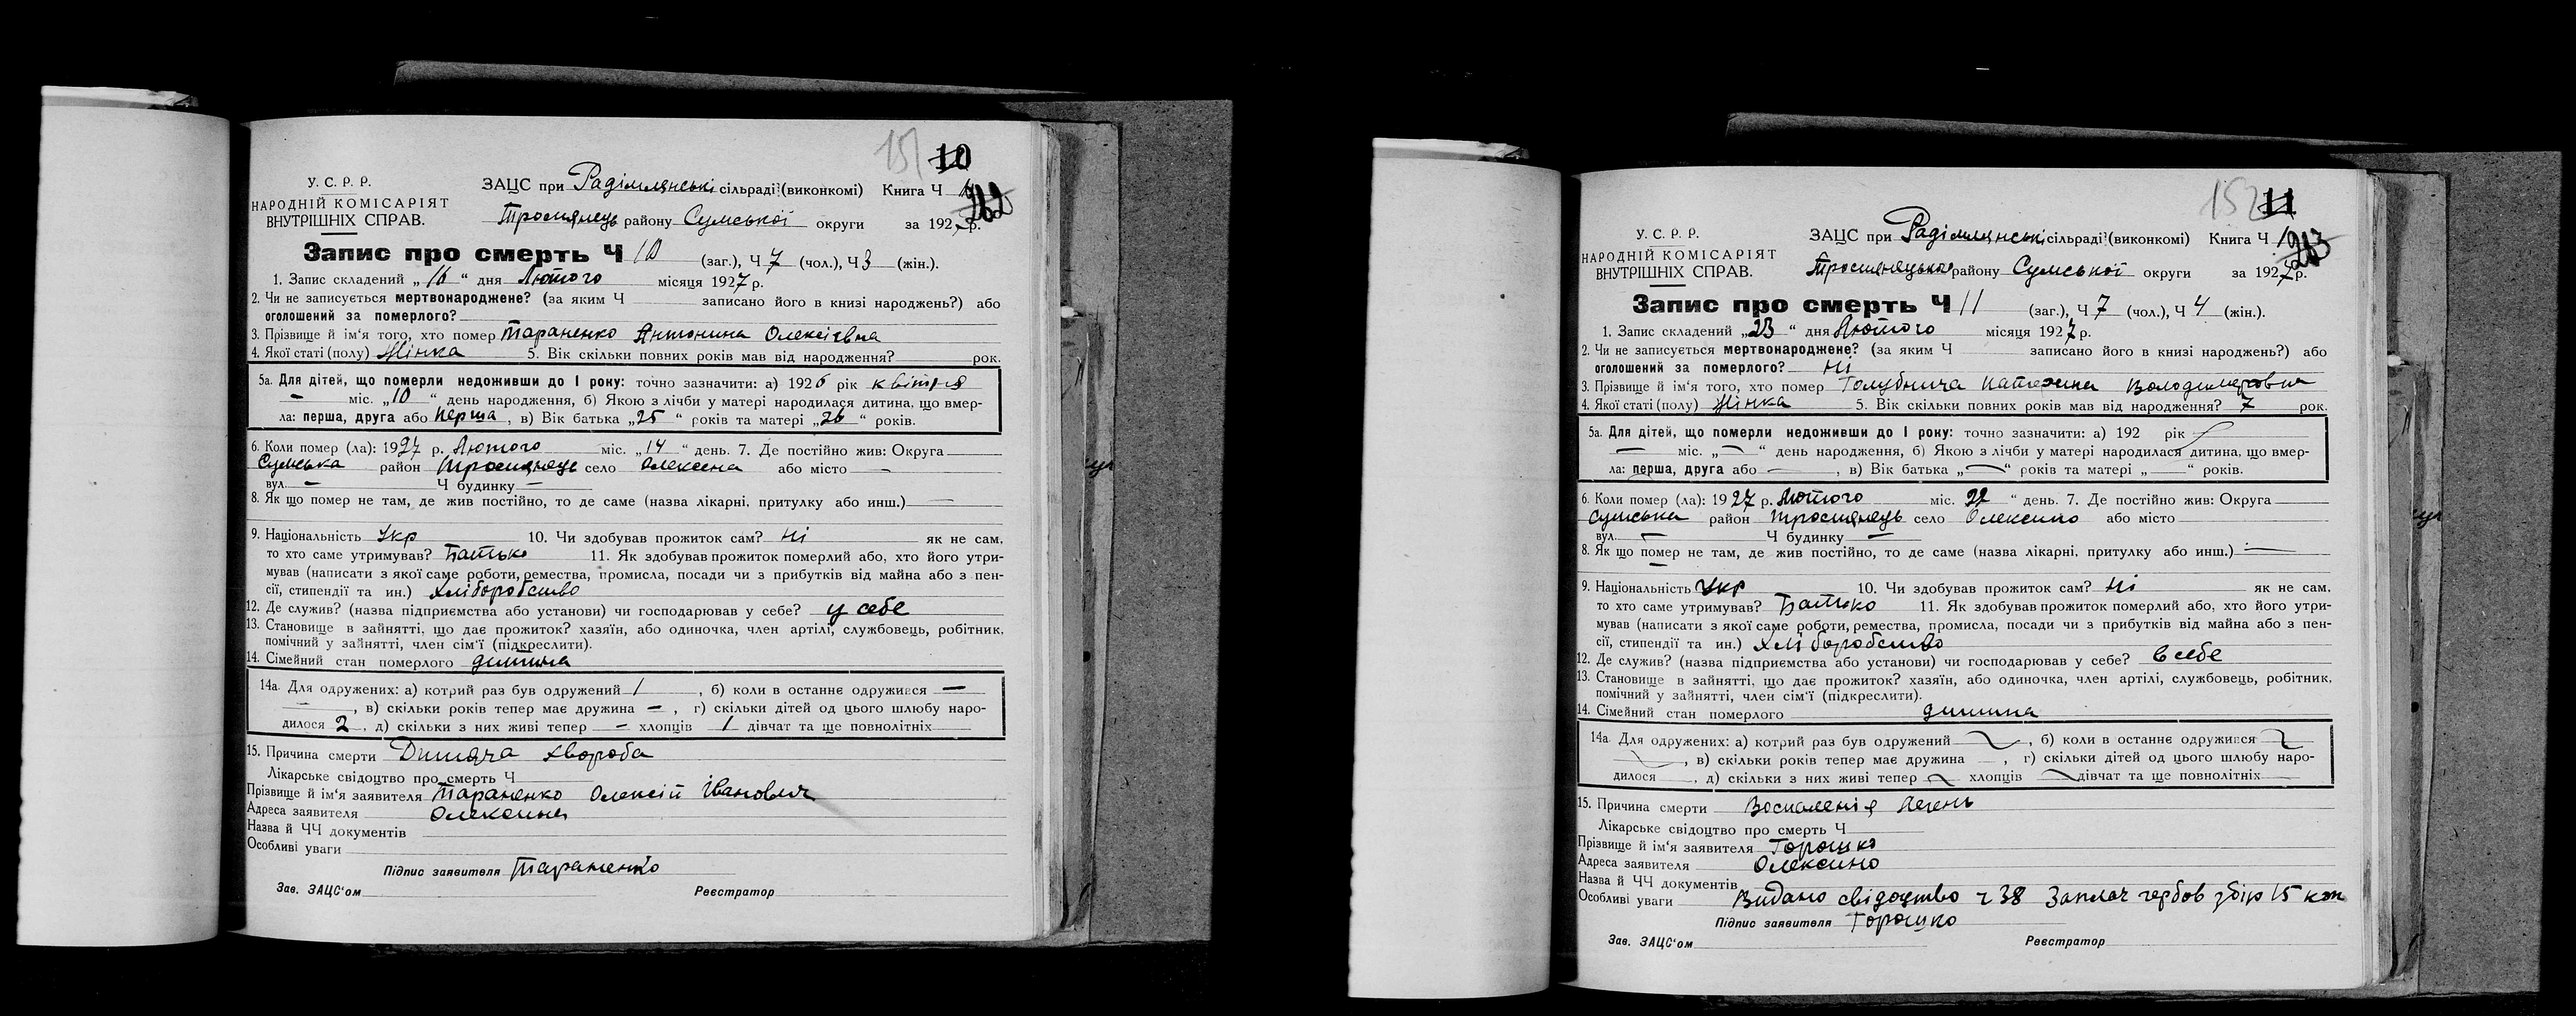 151 10
У. С. Р. Р.
НАРОДНІЙ КОМІСАРІЯТ
ВНУТРІШНІХ СПРАВ.
ЗАЦС при Радімлянські сільраді (виконкомі) Книга Ч 1
262
Тростянець району Сумської округи за 1927 р.
Запис про смерть Ч 10 (заг.), Ч 7 (чол.), Ч 3 (жін.).
1. Запис складений „16“ дня Лютого місяця 1927 р.
2. Чи не записується мертвонароджене? (за яким Ч записано його в книзі народжень?) або
оголошений за померлого?
3. Прізвище й ім‘я того, хто помер Тараненко Антонина Олексіївна
4. Якої статі (полу) Жінка 5. Вік скільки повних років мав від народження? рок.
5а. Для дітей, що померли недоживши до 1 року: точно зазначити: а) 1926 рік квітня
— міс. „10“ день народження, б) Якою з лічби у матері народилася дитина, що вмер-
ла: перша, друга або перша, в) Вік батька „25“ років та матері „26“ років.
6. Коли помер (ла): 1927 р. Лютого міс. „14“ день. 7. Де постійно жив: Округа
Сумська район Тростянець село Олексина або місто —
вул. — Ч будинку —
8. Як що помер не там, де жив постійно, то де саме (назва лікарні, притулку або инш.) —
9. Національність Укр 10. Чи здобував прожиток сам? Ні як не сам,
то хто саме утримував? Батько 11. Як здобував прожиток померлий або, хто його утри-
мував (написати з якої саме роботи, ремества, промисла, посади чи з прибутків від майна або з пен-
сії, стипендії та ин.) Хліборобство
12. Де служив? (назва підприємства або установи) чи господарював у себе? у себе
13. Становище в зайнятті, що дає прожиток? хазяїн, або одиночка, член артілі, службовець, робітник,
помічний у зайнятті, член сім‘ї (підкреслити).
14. Сімейний стан померлого дитина
14а. Для одружених: а) котрий раз був одружений 1, б) коли в останнє одружився —
—, в) скільки років тепер має дружина —, г) скільки дітей од цього шлюбу наро-
дилося 2, д) скільки з них живі тепер — хлопців 1 дівчат та ще повнолітніх
15. Причина смерти Дитяча хвороба
Лікарське свідоцтво про смерть Ч
Прізвище й ім‘я заявителя Тараненко Олексій Іванович
Адреса заявителя Олексина
Назва й ЧЧ документів
Особливі уваги
Підпис заявителя Тараненко
Зав. ЗАЦС‘ом Реєстратор
152 11
У. С. Р. Р.
НАРОДНІЙ КОМІСАРІЯТ
ВНУТРІШНІХ СПРАВ.
ЗАЦС при Радімлянські сільраді (виконкомі) Книга Ч 1
263
Тростянецького району Сумської округи за 1927 р.
Запис про смерть Ч 11 (заг.), Ч 7 (чол.), Ч 4 (жін.).
1. Запис складений „23“ дня Лютого місяця 1927 р.
2. Чи не записується мертвонароджене? (за яким Ч записано його в книзі народжень?) або
оголошений за померлого? Ні
3. Прізвище й ім‘я того, хто помер Голубнича Катерина Володимировна
4. Якої статі (полу) Жінка 5. Вік скільки повних років мав від народження? 7 рок.
5а. Для дітей, що померли недоживши до 1 року: точно зазначити: а) 192 рік —
— міс. „—“ день народження, б) Якою з лічби у матері народилася дитина, що вмер-
ла: перша, друга або —, в) Вік батька „—“ років та матері „—“ років.
6. Коли помер (ла): 1927 р. Лютого міс. 22“ день. 7. Де постійно жив: Округа
Сумська район Тростянець село Олексино або місто
вул. — Ч будинку —
8. Як що помер не там, де жив постійно, то де саме (назва лікарні, притулку або инш.) —
9. Національність Укр 10. Чи здобував прожиток сам? Ні як не сам,
то хто саме утримував? Батько 11. Як здобував прожиток померлий або, хто його утри-
мував (написати з якої саме роботи, ремества, промисла, посади чи з прибутків від майна або з пен-
сії, стипендії та ин.) Хліборобство
12. Де служив? (назва підприємства або установи) чи господарював у себе? в себе
13. Становище в зайнятті, що дає прожиток? хазяїн, або одиночка, член артілі, службовець, робітник,
помічний у зайнятті, член сім‘ї (підкреслити).
14. Сімейний стан померлого дитина
14а. Для одружених: а) котрий раз був одружений —, б) коли в останнє одружився —
—, в) скільки років тепер має дружина —, г) скільки дітей од цього шлюбу наро-
дилося —, д) скільки з них живі тепер — хлопців — дівчат та ще повнолітніх —
15. Причина смерти Воспаленія легень
Лікарське свідоцтво про смерть Ч
Прізвище й ім‘я заявителя Горошко
Адреса заявителя Олексино
Назва й ЧЧ документів
Особливі уваги Видано свідоцтво ч 38 Заплач гербов збір 15 коп
Підпис заявителя Горошко
Зав. ЗАЦС‘ом Реєстратор